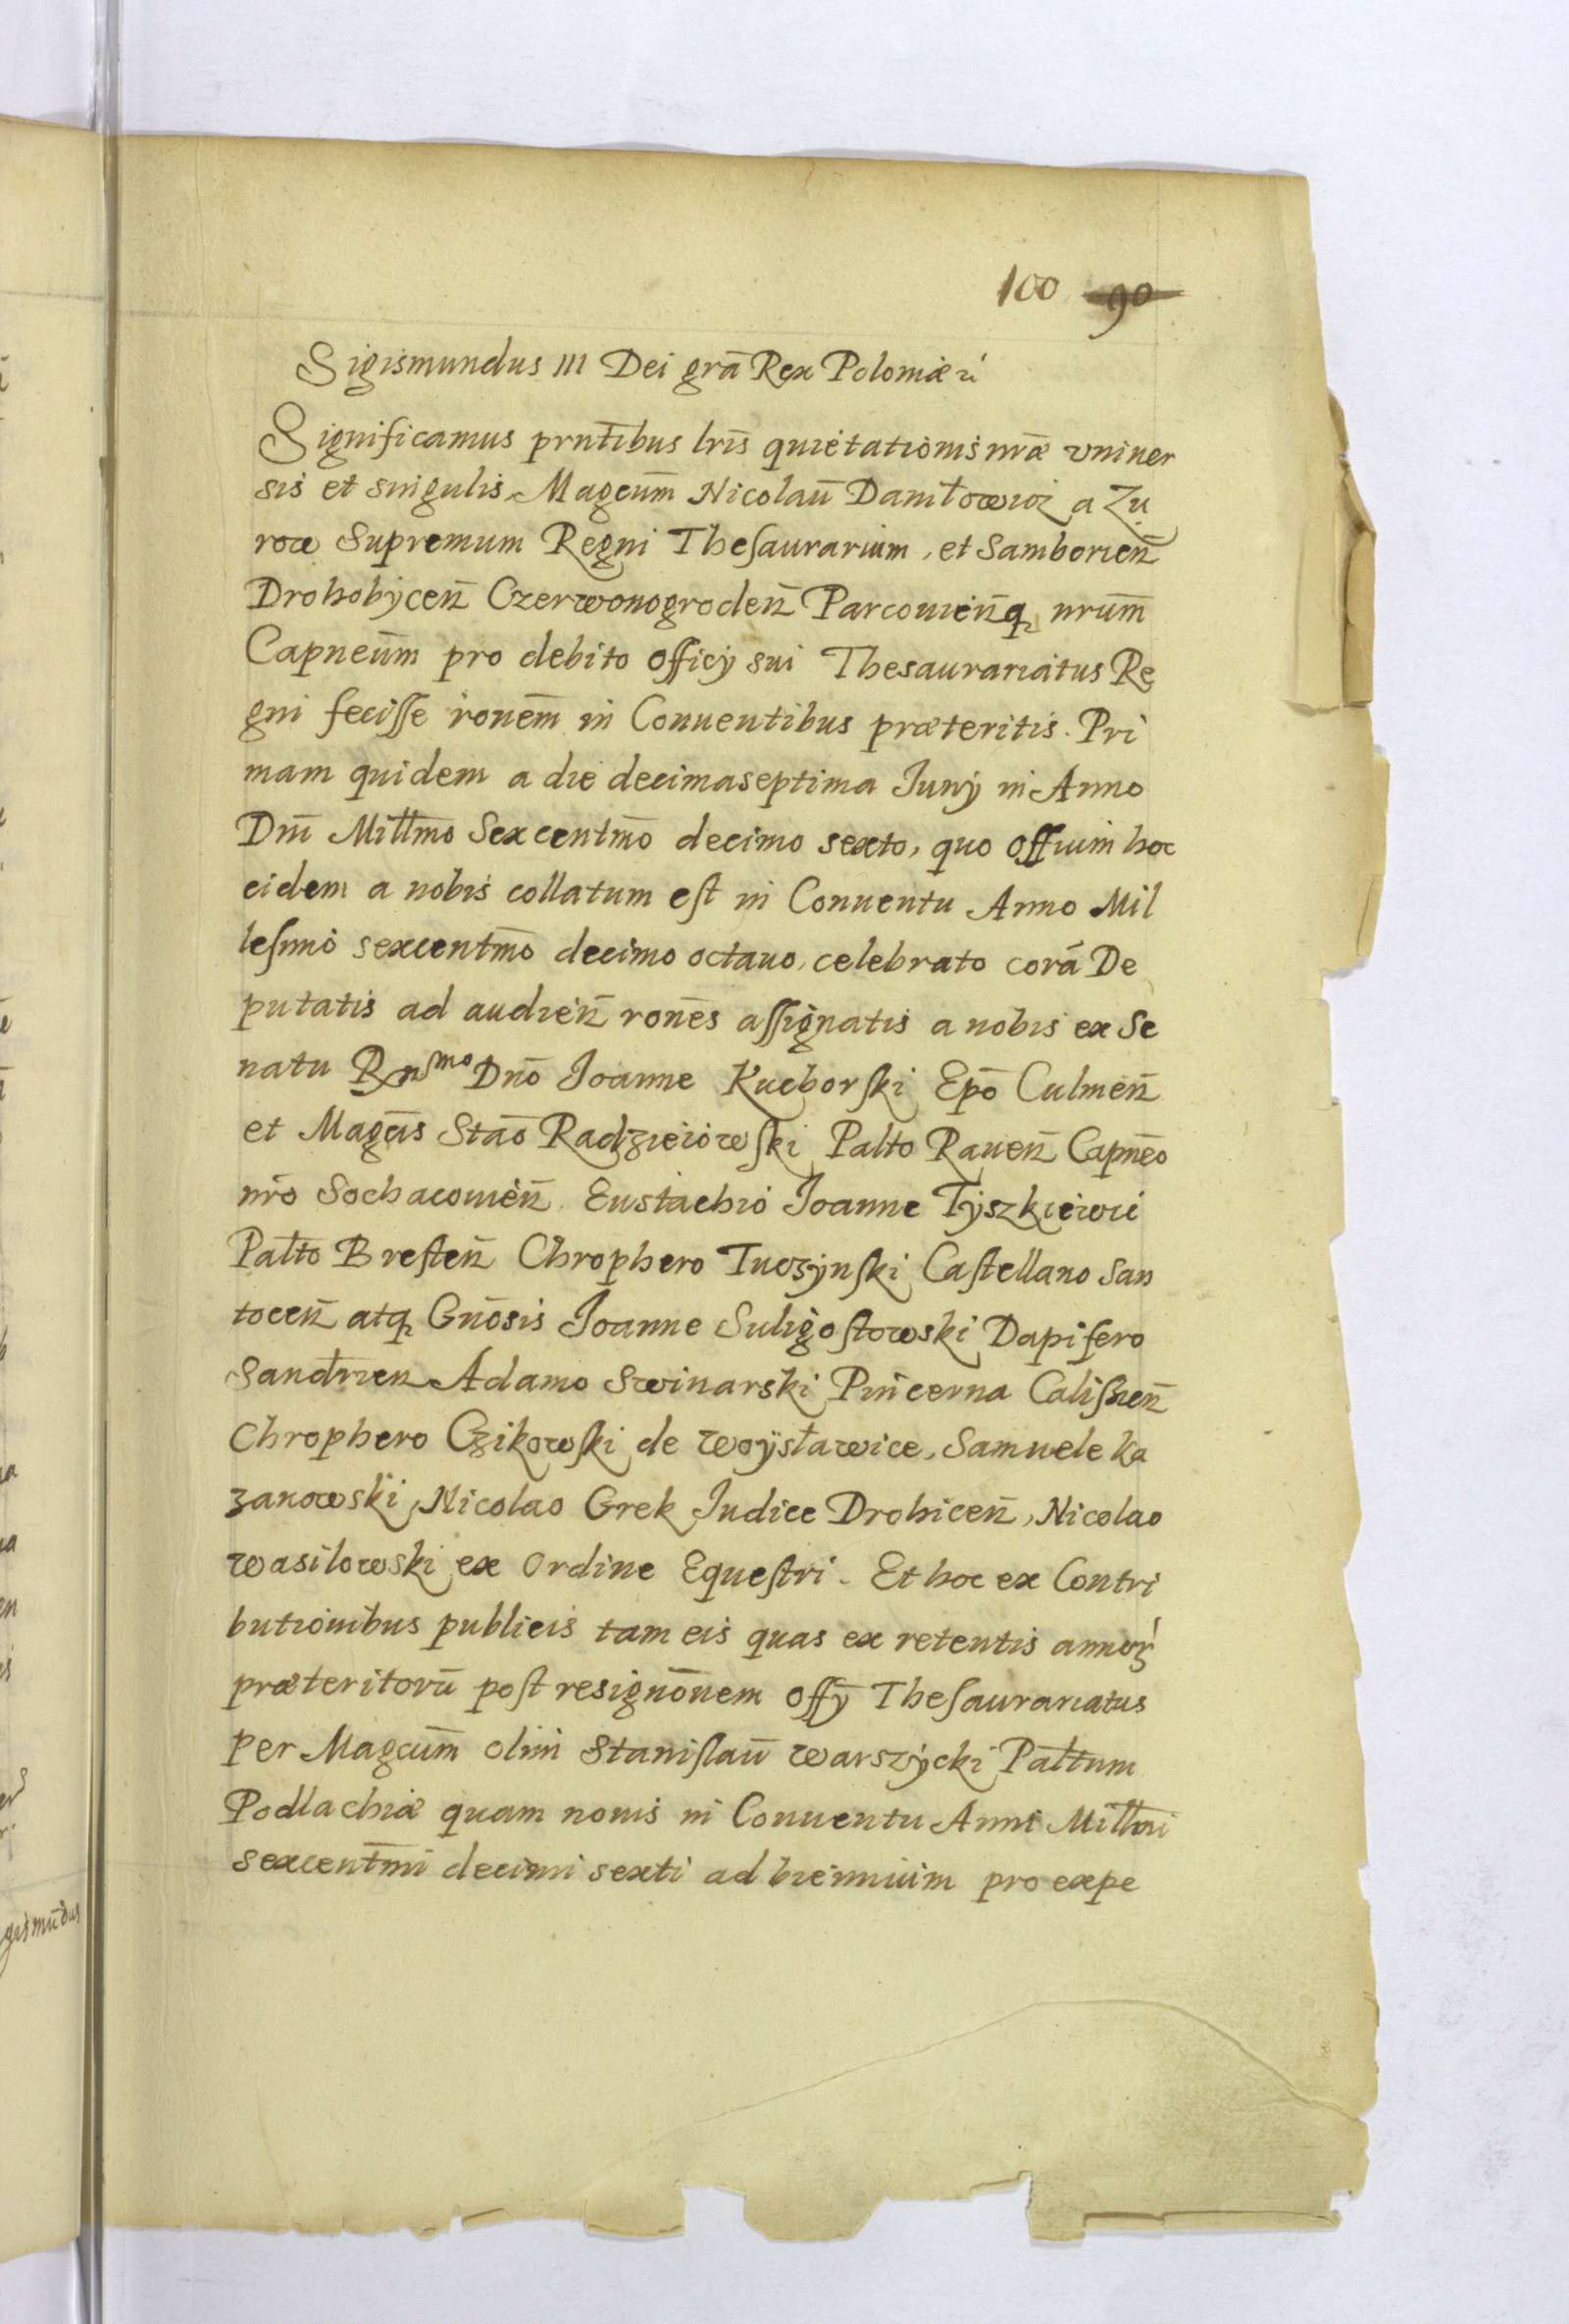 100 90
Sigismundus III Dei grã Rex Poloniæ
Significamus prntibus lris quietationis nræ vniuer
sis et singulis, Magcum̃ Nicolaũ Daniłowicz a Zu
row Supremum Regni Theſaurarium, et Samborien̄
Drohobÿcen̄ Czerwonogroden̄ Parcouien̄q nrum̃
Capneum̃ pro debito officÿ sui Thesaurariatus Re
gni feciſſe ronem̃ in Conuentibus præteritis. Pri
mam quidem a die decimaseptima Junÿ in Anno
Dnĩ Millm̃o Sexcentm̃o decimo sexto, quo offium hoc
eidem a nobis collatum eſt in Conuentu Anno Mil
leſimo sexcentm̃o decimo octauo, celebrato corã De
putatis ad audien̄ ronẽs aſſignatis a nobis ex Se
natu Rnsmo Dnõ Joanne Kucborſki Epõ Culmen̄
et Magcis Staõ Radzieiowſki Palto Rauen̄ Capnẽo
nrõ Sochacouien̄. Eustachio Joanne Tÿszkiewici
Palto Breſten̄ Chrophero Tuczÿnſki Caſtellano San
tocen̄ atq Gnõsis Joanne Suligoſtowski Dapifero
Sandrien Adamo Swinarski Pincerna Caliſien̄
Chrophero Czikowſki de Woÿsławice, Samuele Ka
zanowski, Nicolao Grek Judice Drohicen̄, Nicolao
Wasilowski ex Ordine Equeſtri. Et hoc ex Contri
butionibus publicis tam eis quas ex retentis annoꝝ
præteritorũ poſt resignõnem offÿ Theſaurariatus
per Magcum̃ olim Staniſlaũ Warszÿcki Paltum
Podlachiæ quam nouis in Conuentu Anni Millmi
sexcentmi decimi sexti ad biennium pro expe